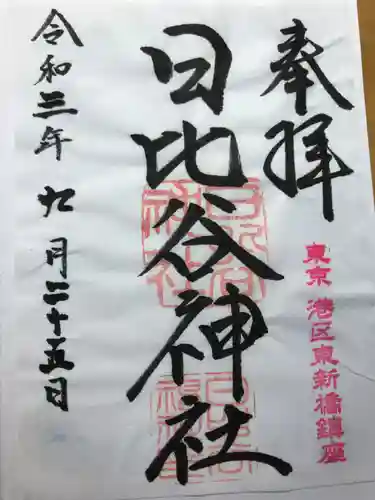 奉拝
東京 港区東新橋鎮座
日比谷神社
令和三年九月二十五日